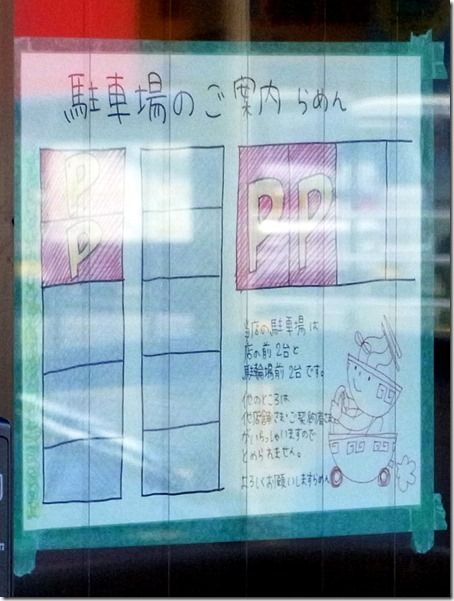 駐車場のご案内 らめん
P
P
P P
当店の駐車場は
店の前2台と
駐輪場前2台です。
他のところは
他店舗さま・ご契約者さま
がいらっしゃいますので
とめられません。
よろしくお願いしますらめん